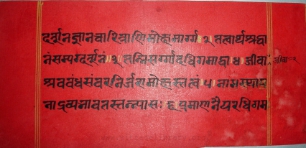 दर्शनज्ञानचारित्राणिमोक्षमार्गः १ तत्वार्थश्रद्धा
नंसम्यग्दर्शनं २ तन्निसर्गादधिगमाद्वा ३ जीवा
श्रवबंधसंवरनिर्जरामोक्षस्तत्वं ४ नामस्थाप
नाद्रव्यभावतस्तन्न्यासः ५ प्रमाणनयैरधिगम